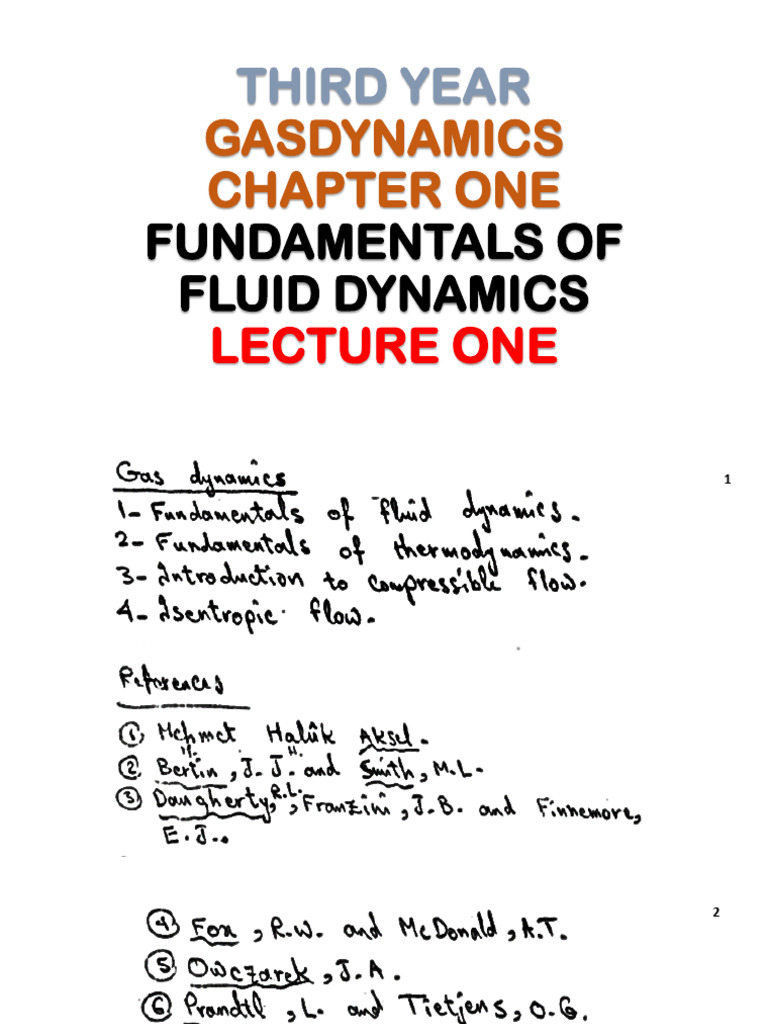 THIRD YEAR
GASDYNAMICS
CHAPTER ONE
FUNDAMENTALS OF
FLUID DYNAMICS
LECTURE ONE
1
Gas dynamics
1- Fundamentals of fluid dynamics.
2- Fundamentals of thermodynamics.
3- Introduction to compressible flow.
4- Isentropic flow.
References
① Mehmet Halûk Aksel.
② Bertin, J. J. and Smith, M. L.
③ Daugherty, R.L., Franzini, J.B. and Finnemore,
E.J.,
2
④ Fox, R.W. and McDonald, A.T.
⑤ Owczarek, J.A.
⑥ Prandtl, L. and Tietjens, O.G.